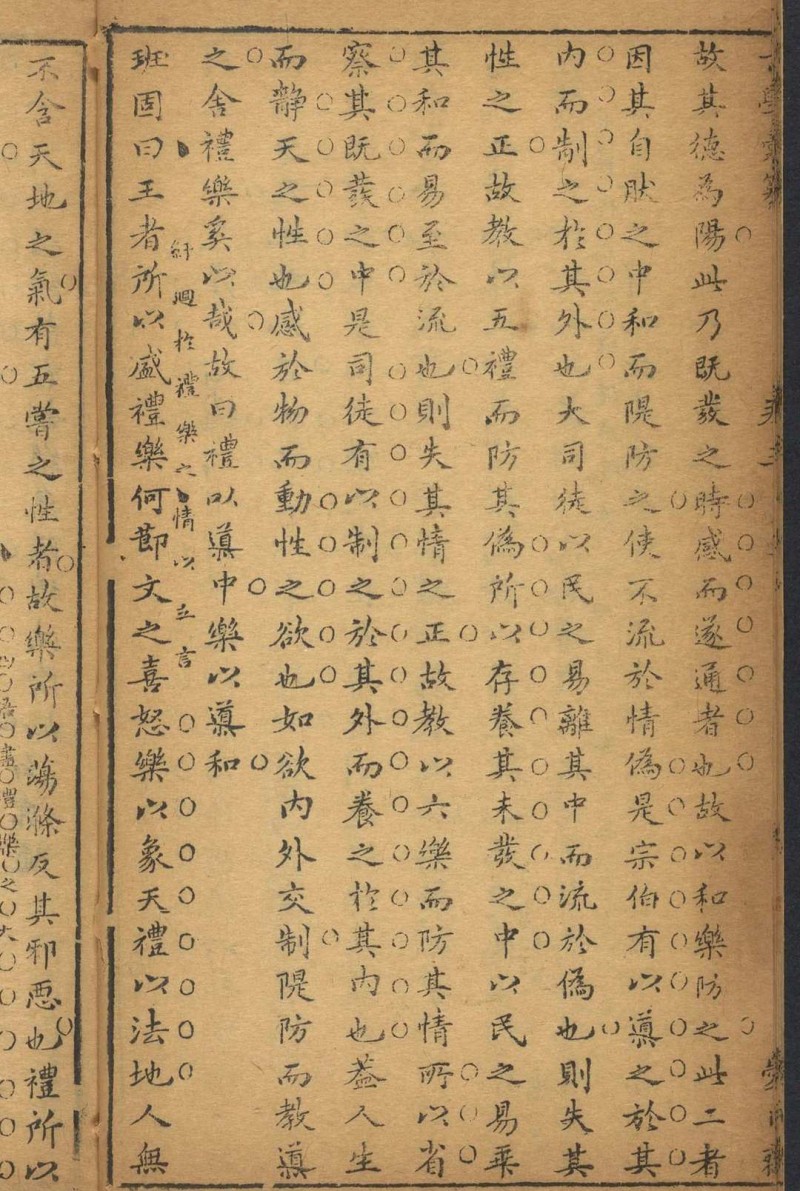 故其德為陽此乃既發之時感而遂通者也故以和樂防之此二者
因其自肰之中和而隄防之使不流於情偽是宗伯有以導之於其
內而制之於其外也大司徒以民之易離其中而流於偽也則失其
性之正故教以五禮而防其偽所以存養其未發之中以民之易乖
其和而易至於流也則失其情之正故教以六樂而防其情所以省
察其既發之中是司徒有以制之於其外而養之於其內也蓋人生
而靜天之性也感於物而動性之欲也如欲內外交制隄防而教導
之舍禮樂奚以哉故曰禮以導中樂以導和
紆迴於禮樂之情以立言
班固曰王者所以盛禮樂何節文之喜怒樂以象天禮以法地人無
不含天地之氣有五嘗之性者故樂所以蕩滌反其邪惡也禮所以